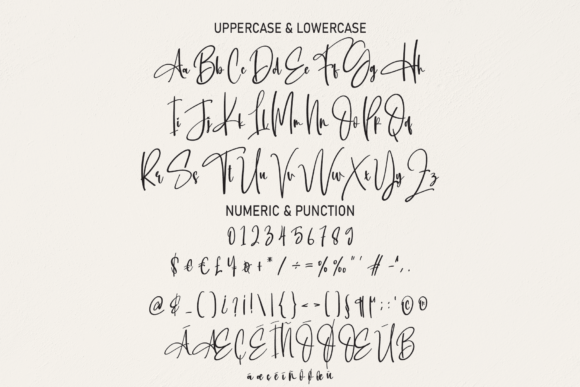 UPPERCASE & LOWERCASE
Aa Bb Cc Dd Ee Ff Gg Hh
Ii Jj Kk Ll Mm Nn Oo Pp Qq
Rr Ss Tt Uu Vv Ww Xx Yy Zz
NUMERIC & PUNCTION
0123456789
$ ¢ € £ ¥ ¤ + * / ÷ = % ‰ " ' # - ^ , .
@ & _ ( ) ¿ ? ¡ ! \ | { } < > [ ] § ¶ : ; ' © ®